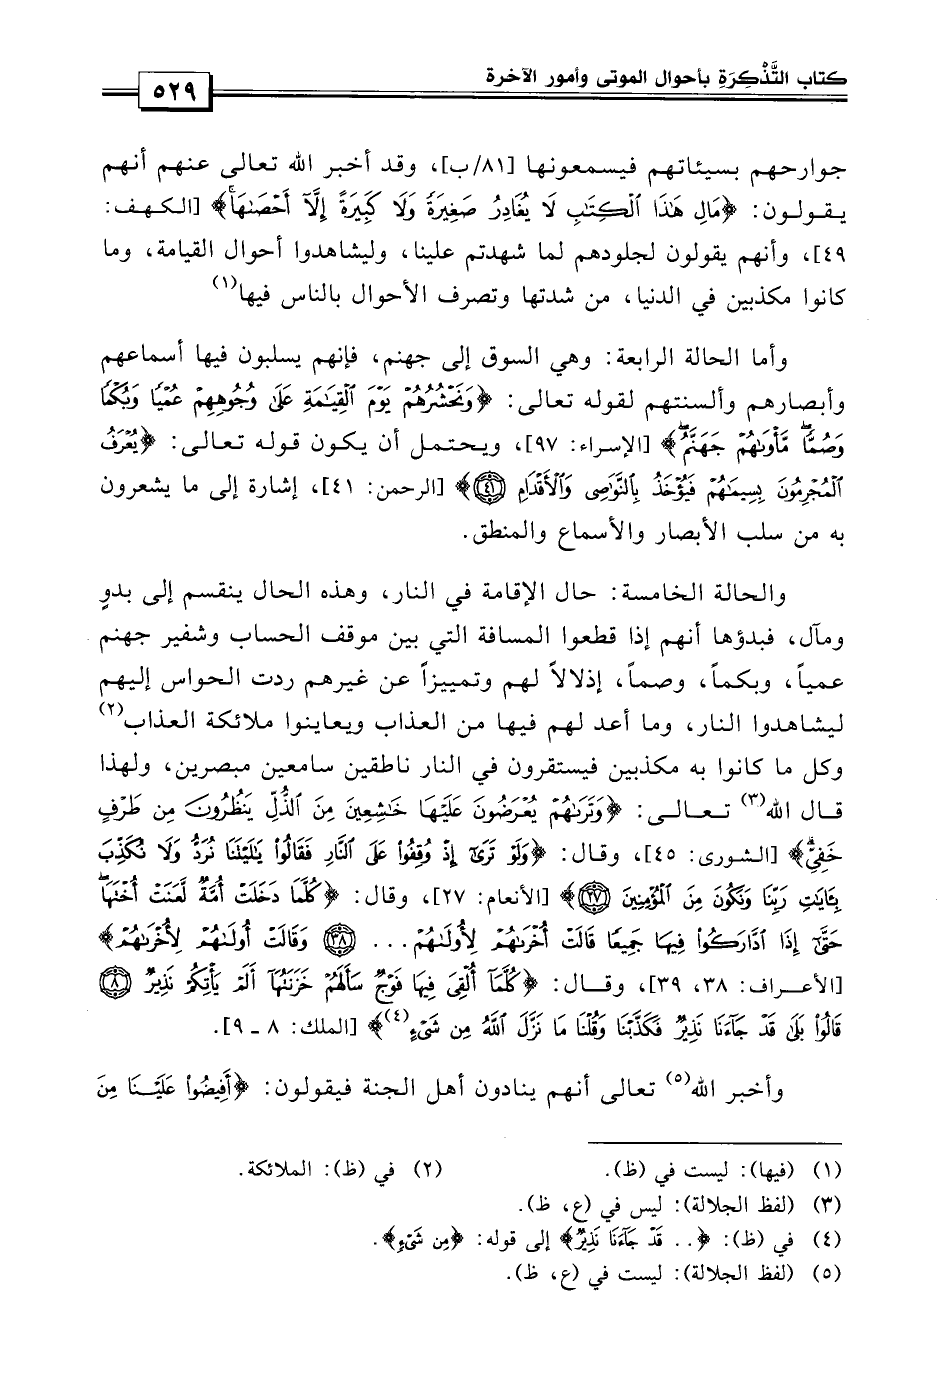 كتاب التَّذْكِرَةِ بأحوال الموتى وأمور الآخرة
٥٢٩
جوارحهم بسيئاتهم فيسمعونها [٨١/ب]، وقد أخبر الله تعالى عنهم أنهم
يقولون: ﴿مَالِ هَٰذَا ٱلْكِتَٰبِ لَا يُغَادِرُ صَغِيرَةً وَلَا كَبِيرَةً إِلَّآ أَحْصَىٰهَاۚ﴾ [الكهف:
٤٩]، وأنهم يقولون لجلودهم لما شهدتم علينا، وليشاهدوا أحوال القيامة، وما
كانوا مكذبين في الدنيا، من شدتها وتصرف الأحوال بالناس فيها(١)
وأما الحالة الرابعة: وهي السوق إلى جهنم، فإنهم يسلبون فيها أسماعهم
وأبصارهم وألسنتهم لقوله تعالى: ﴿وَنَحْشُرُهُمْ يَوْمَ ٱلْقِيَٰمَةِ عَلَىٰ وُجُوهِهِمْ عُمْيًا وَبُكْمًا
وَصُمًّاۖ مَّأْوَىٰهُمْ جَهَنَّمُۖ﴾ [الإسراء: ٩٧]، ويحتمل أن يكون قوله تعالى: ﴿يُعْرَفُ
ٱلْمُجْرِمُونَ بِسِيمَٰهُمْ فَيُؤْخَذُ بِٱلنَّوَٰصِى وَٱلْأَقْدَامِ ﴿٤١﴾﴾ [الرحمن: ٤١]، إشارة إلى ما يشعرون
به من سلب الأبصار والأسماع والمنطق.
والحالة الخامسة: حال الإقامة في النار، وهذه الحال ينقسم إلى بدوٍ
ومآل، فبدؤها أنهم إذا قطعوا المسافة التي بين موقف الحساب وشفير جهنم
عمياً، وبكماً، وصماً، إذلالاً لهم وتمييزاً عن غيرهم ردت الحواس إليهم
ليشاهدوا النار، وما أعد لهم فيها من العذاب ويعاينوا ملائكة العذاب(٢)
وكل ما كانوا به مكذبين فيستقرون في النار ناطقين سامعين مبصرين، ولهذا
قال الله(٣) تعالى: ﴿وَتَرَىٰهُمْ يُعْرَضُونَ عَلَيْهَا خَٰشِعِينَ مِنَ ٱلذُّلِّ يَنظُرُونَ مِن طَرْفٍ
خَفِىٍّۗ﴾ [الشورى: ٤٥]، وقال: ﴿وَلَوْ تَرَىٰٓ إِذْ وُقِفُوا۟ عَلَى ٱلنَّارِ فَقَالُوا۟ يَٰلَيْتَنَا نُرَدُّ وَلَا نُكَذِّبَ
بِـَٔايَٰتِ رَبِّنَا وَنَكُونَ مِنَ ٱلْمُؤْمِنِينَ ﴿٢٧﴾﴾ [الأنعام: ٢٧]، وقال: ﴿كُلَّمَا دَخَلَتْ أُمَّةٌ لَّعَنَتْ أُخْتَهَاۖ
حَتَّىٰٓ إِذَا ٱدَّارَكُوا۟ فِيهَا جَمِيعًا قَالَتْ أُخْرَىٰهُمْ لِأُولَىٰهُمْ ... ﴿٣٨﴾ وَقَالَتْ أُولَىٰهُمْ لِأُخْرَىٰهُمْ﴾
[الأعراف: ٣٨، ٣٩]، وقال: ﴿كُلَّمَآ أُلْقِىَ فِيهَا فَوْجٌ سَأَلَهُمْ خَزَنَتُهَآ أَلَمْ يَأْتِكُمْ نَذِيرٌ ﴿٨﴾
قَالُوا۟ بَلَىٰ قَدْ جَآءَنَا نَذِيرٌ فَكَذَّبْنَا وَقُلْنَا مَا نَزَّلَ ٱللَّهُ مِن شَىْءٍ(٤)﴾ [الملك: ٨ ـ ٩].
وأخبر الله(٥) تعالى أنهم ينادون أهل الجنة فيقولون: ﴿أَفِيضُوا۟ عَلَيْنَا مِنَ
(١) (فيها): ليست في (ظ). (٢) في (ظ): الملائكة.
(٣) (لفظ الجلالة): ليس في (ع، ظ).
(٤) في (ظ): ﴿.. قَدْ جَآءَنَا نَذِيرٌ﴾ إلى قوله: ﴿مِن شَىْءٍ﴾.
(٥) (لفظ الجلالة): ليست في (ع، ظ).